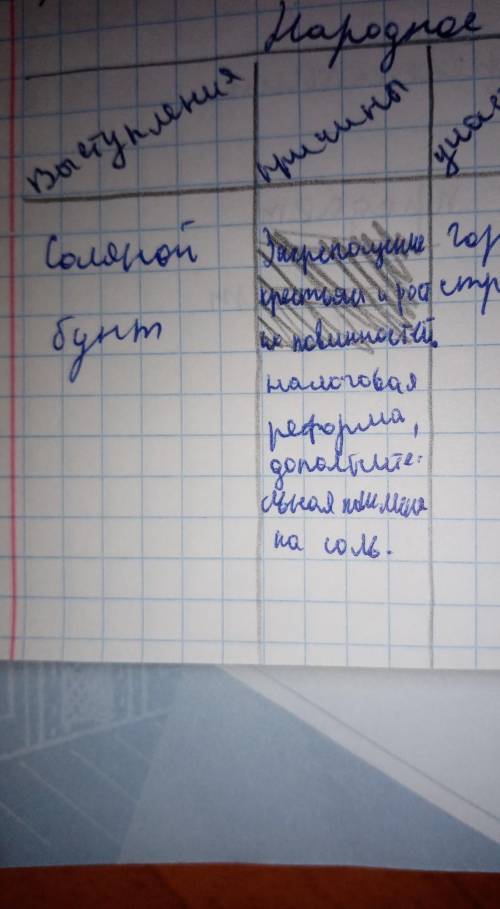 Народное
Выступления
причины
учас
Соляной
бунт
Закрепощение
крестьян и рост
их повинностей.
налоговая
реформа,
дополните-
льная пошлина
на соль.
гор
стр